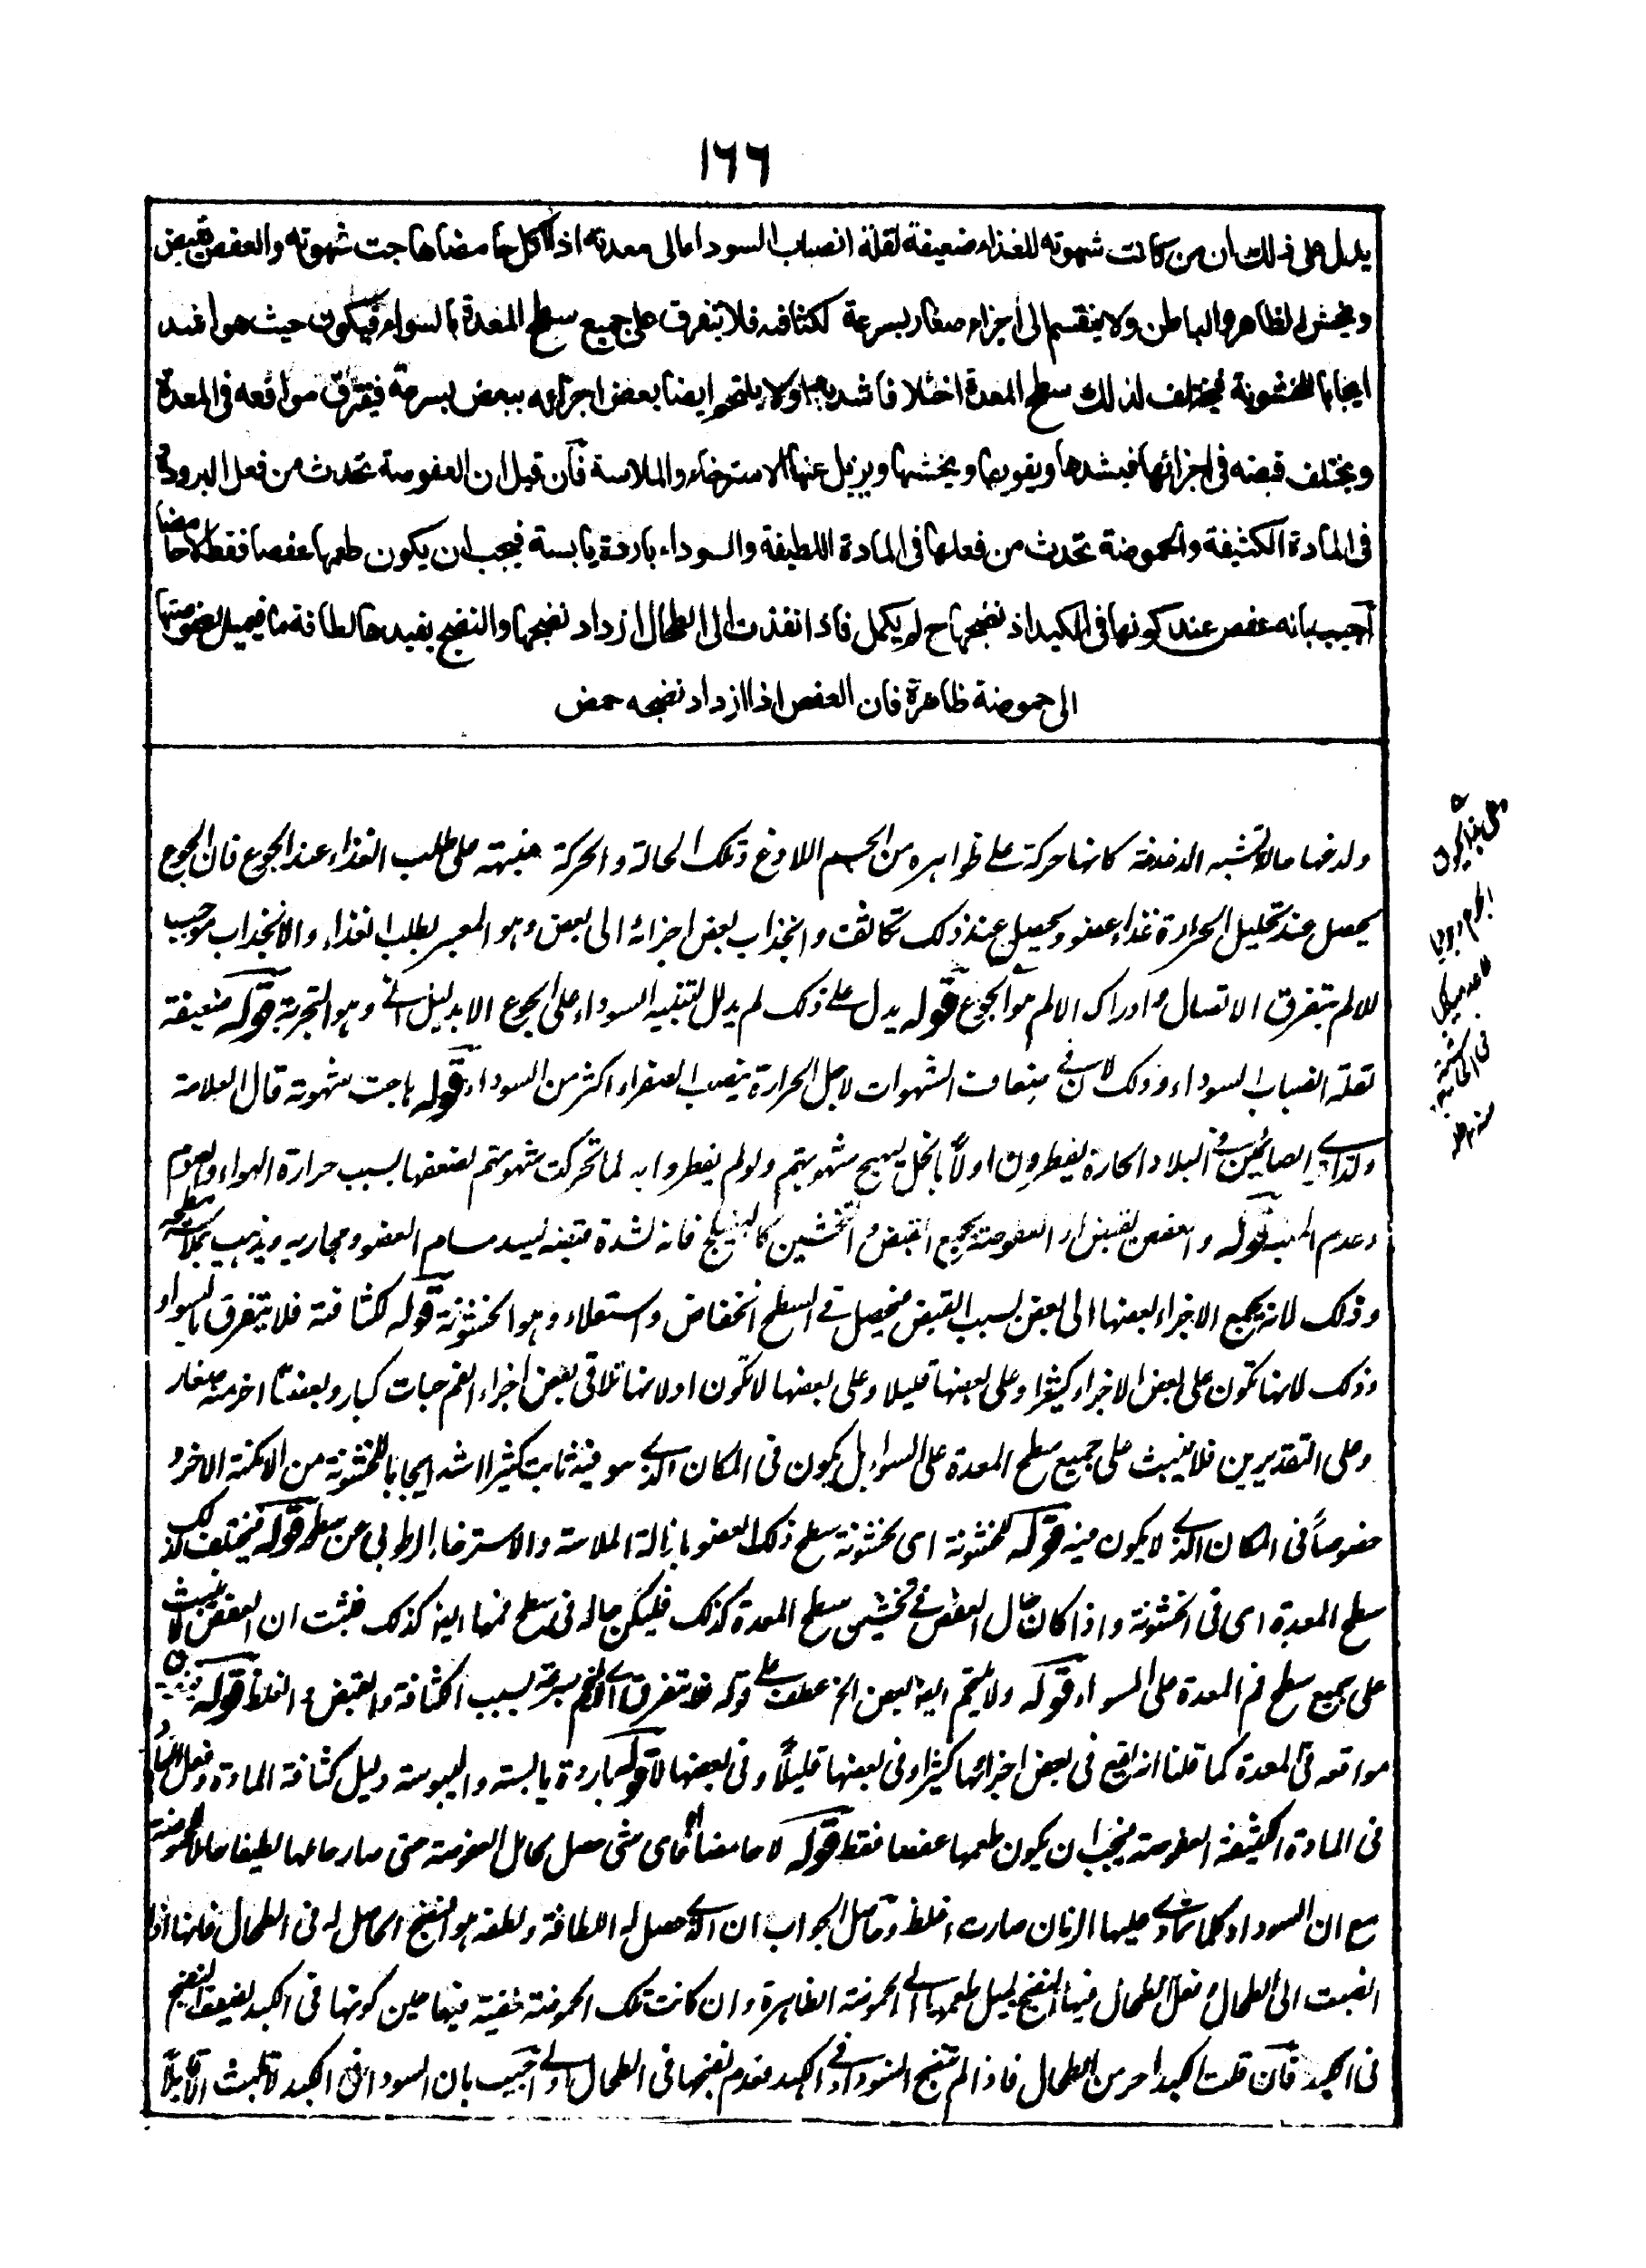 ١٦٦
يدل على ذلك ان من كانت شهوته للغذاء ضعيفة لقلة انصباب السوداء الى معدته اذا اكل حامضا هاجت شهوته والعفص يقبض
ويخشن الظاهر والباطن ولا ينقسم الى اجزاء صغار بسرعة لكثافته فلا يتفرق على جميع سطح المعدة بالسواء فيكون حيث هو اشد
ايجابا للخشونة فيختلف لذلك سطح المعدة اختلافا شديدا ولا يلتحم ايضا بعض اجزائه ببعض بسرعة فيفترق مواقعه فى المعدة
ويختلف قبضه فى اجزائها فيشدها ويقويها ويخشنها ويزيل عنها الاسترخاء والملاسة فان قيل ان العفوصة تحدث من فعل البرودة
فى المادة الكثيفة والحموضة تحدث من فعلها فى المادة اللطيفة والسوداء باردة يابسة فيجب ان يكون طعمها عفصا فقط لا حامضا
اجيب بانه عفص عند كونها فى الكبد اذ نضجها ح لم يكمل فاذا نفذت الى الطحال ازداد نضجها والنضج يفيدها لطافة ما فيميل عفوصتها
الى حموضة ظاهرة فان العفص اذا ازداد نضجه حمض
ولدغها حالة تشبه الدغدغة كانها حركة على ظواهره من الجسم اللاذع وتلك الحالة والحركة منبهة على طلب الغذاء عند الجوع فان الجوع
يحصل عند تحليل الحرارة غذاء عضو ويحصل عند ذلك تكاثف وانجذاب بعض اجزائه الى بعض وهو المعبر بطلب الغذاء والانجذاب موجب
للالم بتفرق الاتصال وادراك الالم هو الجوع قوله يدل على ذلك لم يدلل لتنبيه السوداء على الجوع الا بدليل انى وهو التجربة قوله ضعيفة
لقلة انصباب السوداء وذلك لان فى ضعاف الشهوات لاجل الحرارة ينصب الصفراء اكثر من السوداء قوله هاجت شهوته قال العلامة
ولذا ترى الصائمين فى البلاد الحارة يفطرون اولاً بالخل ليهيج شهوتهم ولو لم يفطروا به لما تحركت شهوتهم لضعفها بسبب حرارة الهواء والصوم
وعدم قوله والعفص يقبض اى العفوصة يجمع القبض والتخشين كالهليلج فانه لشدة قبضه ليسد مسام العضو ومجاريه ويذهب بملاسة سطحه
وذلك لانه يجمع الاجزاء بعضها الى بعض بسبب القبض فيحصل فى السطح انخفاض واستعلاء وهو الخشونة قوله لكثافته فلا يتفرق بالسواء
وذلك لانها تكون على بعض الاجزاء كثيرا وعلى بعضها قليلا وعلى بعضها لا تكون اولانها تلاقى بعض اجزاء الفم حبات كبار وبعضها اخر منه صغار
وعلى التقديرين فلا ينبث على جميع سطح المعدة على السواء بل يكون فى المكان الذى هو فيه ثابت كثيرا اشد ايجابا للخشونة من الامكنة الاخر و
خصوصاً فى المكان الذى لا يكون فيه قوله للخشونة اى لخشونة سطح ذلك العضو بازالة الملاسة والاسترخاء الرطوبى من سطحه قوله فيختلف لذلك
سطح المعدة اى فى الخشونة واذا كان حال العفص فى تخشين سطح المعدة كذلك فليكن حاله فى سطح فمها ايضا كذلك فثبت ان العفص لا ينبث
على جميع سطح فم المعدة على السواء قوله ولا يلتحم ايضا بعض الخ عطف على قوله فلا يتفرق اى لا يلتحم بسرعة بسبب الكثافة والقبض والغلظ قوله
مواقعه فى المعدة كما قلنا انه يقع فى بعض اجزائها كثيرا وفى بعضها قليلاً وفى بعضها لا قوله باردة يابسة واليبوسة دليل كثافة المادة وفعل البارد
فى المادة الكثيفة العفوصة فيجب ان يكون طعمها عفصا فقط قوله لا حامضا اى متى حصل لحامل العفوصة حتى صار حاملها لطيفا حاملا لحموضة
مع ان السوداء كلما تمادى عليها الزمان صارت اغلظ وحاصل الجواب ان الذى حصل له اللطافة ولطفه هو النضج الحاصل له فى الطحال فانها اذا
انصبت الى الطحال وفعل الطحال فيها النضج يميل طعمها الى الحموضة الظاهرة وان كانت تلك الحموضة خفية فيها حين كونها فى الكبد لضعف النضج
فى الكبد فان قلت الكبد احر من الطحال فاذا لم تنضج السوداء فى الكبد فعدم نضجها فى الطحال اولى اجيب بان السوداء فى الكبد لا تلبث الا قليلاً